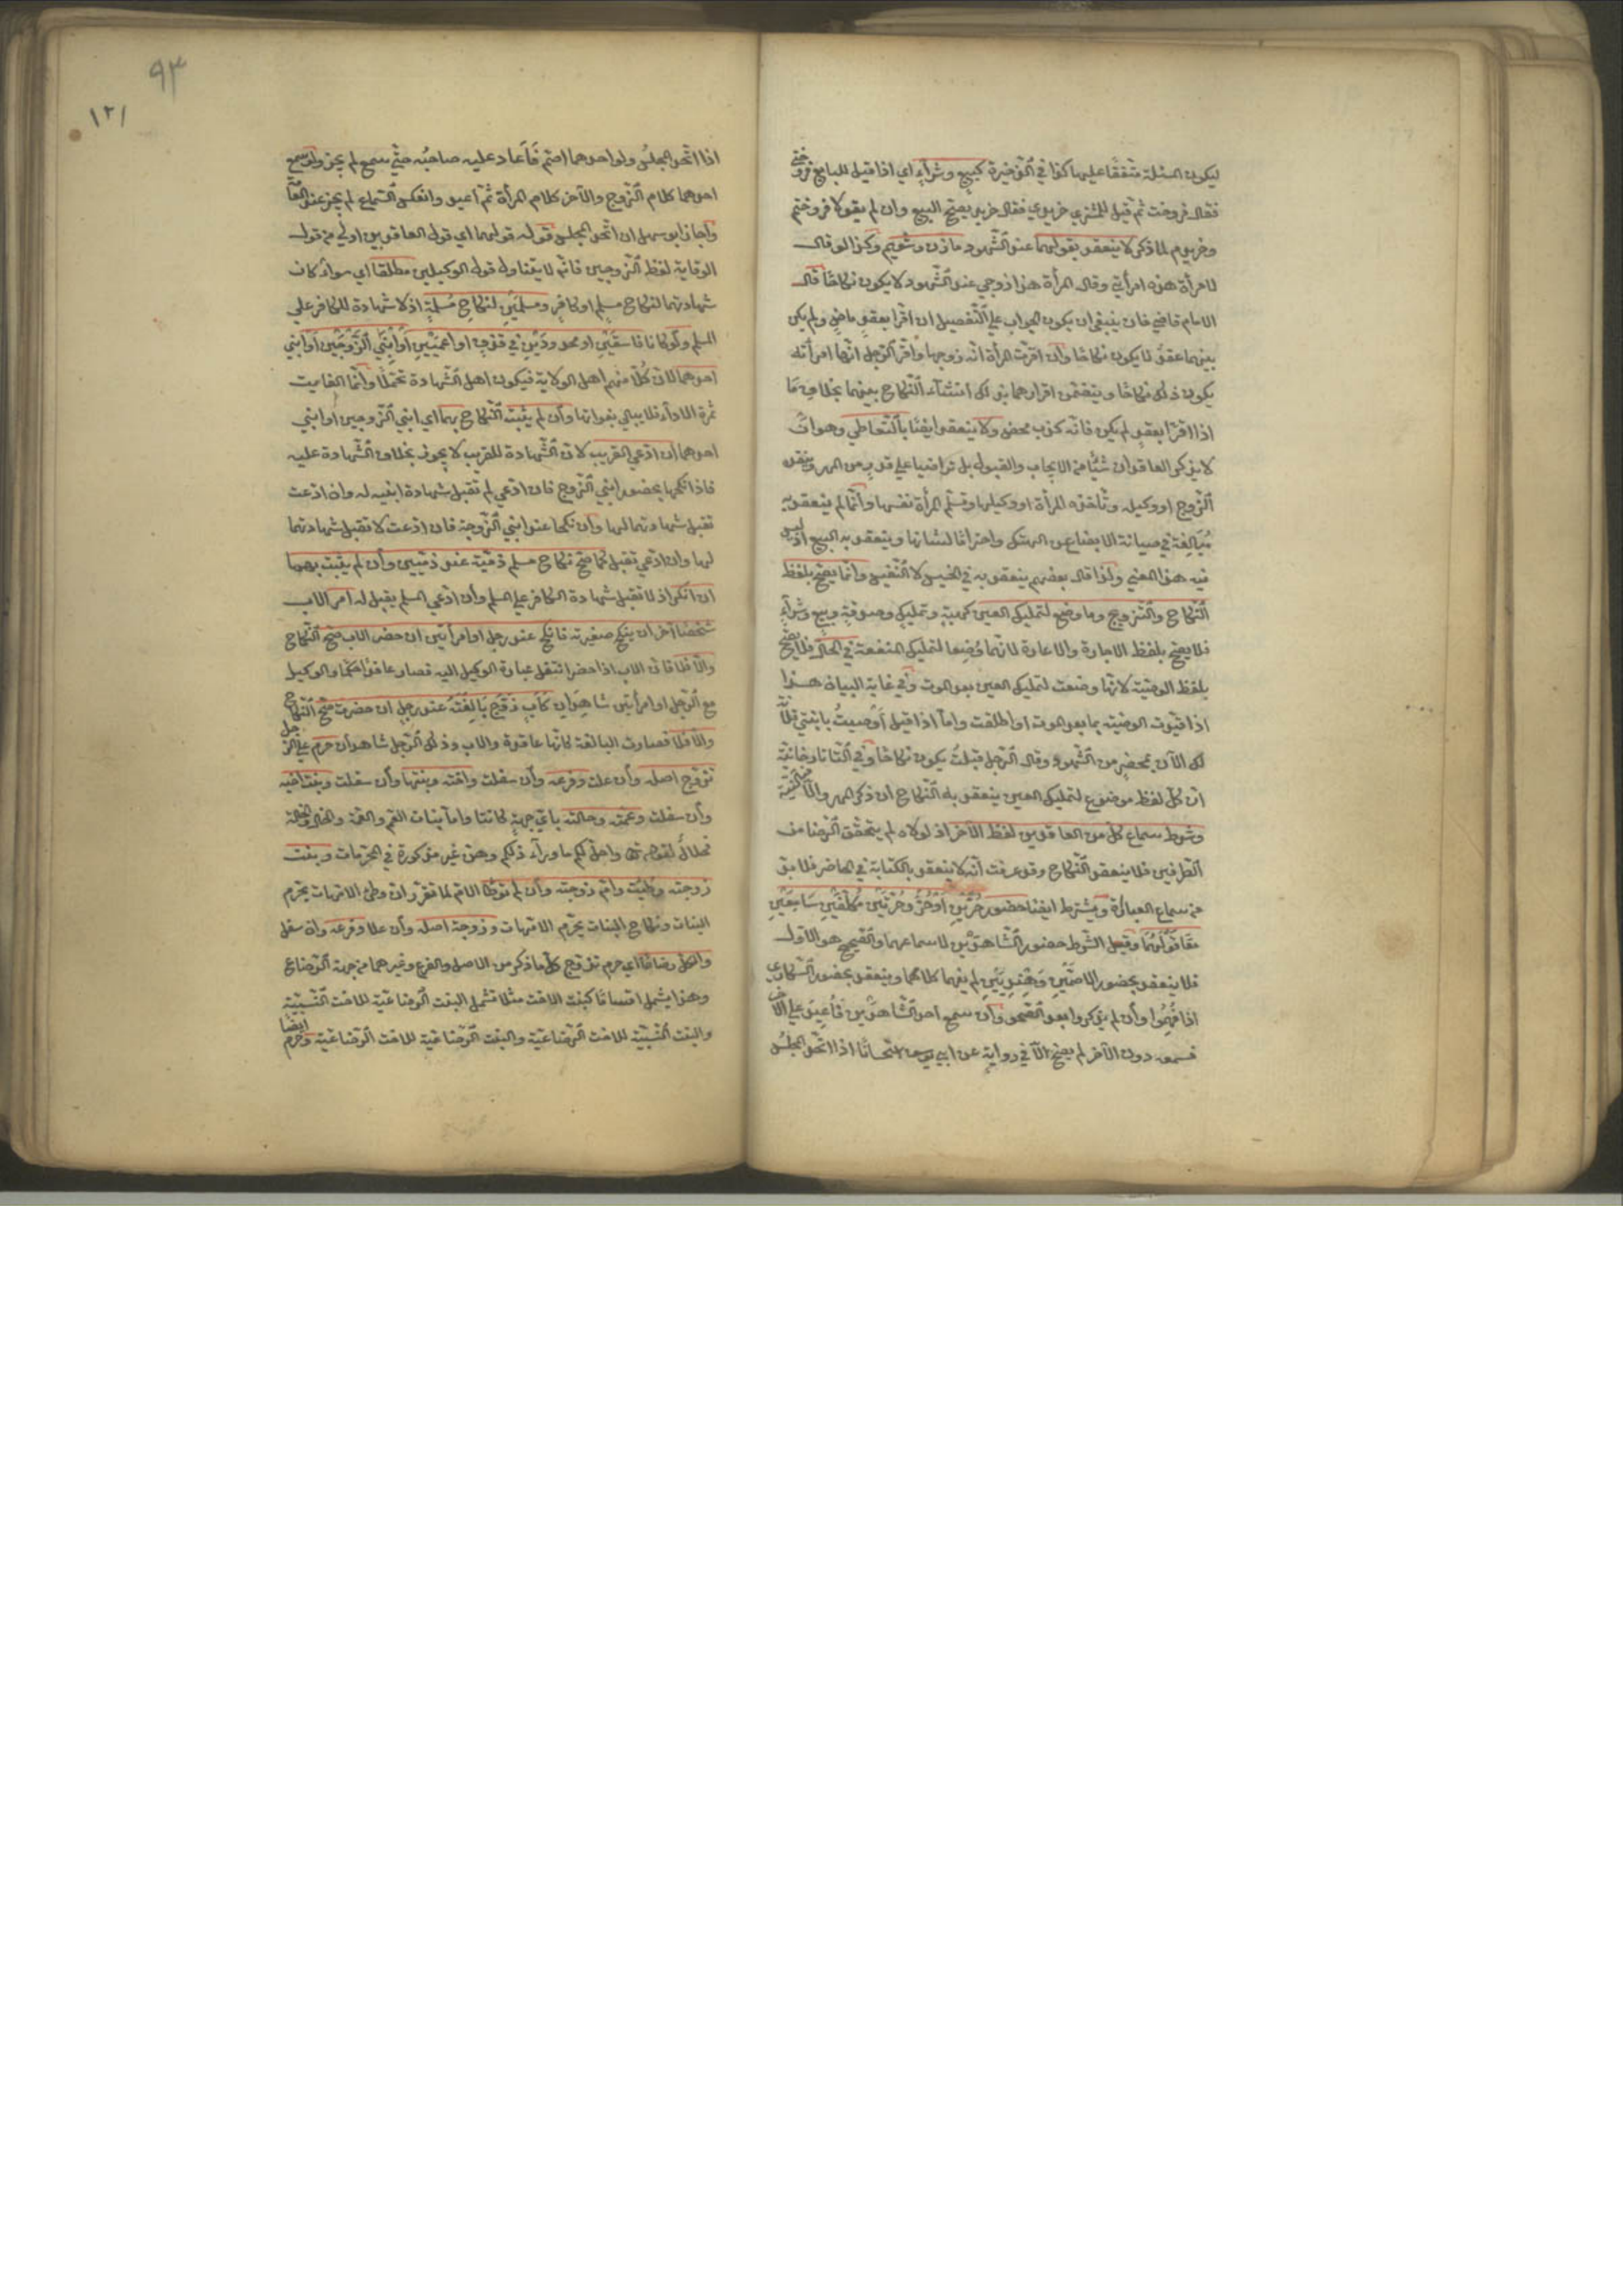 ليكون المسئلة متفقا عليها كذا في الذخيرة كبيع وشراء اي اذا قيل للبايع فروختي
فقال فروخت ثم قيل للمشتري خريدي فقال خريد يصح البيع وان لم يقولا فروختم
وخريدم لما ذكر لا ينعقد بقولهما عند الشهود مازن وشويم وكذا لو قال
لامرأة هذه امرأتي وقالت المرأة هذا زوجي عند الشهود لا يكون نكاحا قال
الامام قاضي خان ينبغي ان يكون الجواب على التفصيل ان اقرا بعقد ماض ولم يكن
بينهما عقد لا يكون نكاحا وان اقرت المرأة انه زوجها واقر الرجل انها امرأته
يكون ذلك نكاحا ويتضمن اقرارهما بذلك انشاء النكاح بينهما بخلاف ما
اذا اقرا بعقد لم يكن فانه كذب محض ولا ينعقد ايضا بالتعاطي وهو ان
لا يذكر العاقدان شيئا من الايجاب والقبول بل تراضيا على قدر من المهر وينقد
الزوج او وكيله وتأخذه المرأة او وكيلها وتسلم المرأة نفسها وانما لم ينعقد به
مبالغة في صيانة الابضاع عن الهتك واحتراما لشانها وينعقد به البيع اذ ليس
فيه هذا المعني ولذا قال بعضهم ينعقد به في الخسيس لا النفيس وانما يصح بلفظ
النكاح والتزويج وما وضع لتمليك العين كهبة وتمليك وصدقة وبيع وشراء
فلا يصح بلفظ الاجارة والاعارة لانهما وضعا لتمليك المنفعة في الحال فلا يصح
بلفظ الوصية لانها وضعت لتمليك العين بعد الموت وفي غاية البيان هذا
اذا قيدت الوصية بما بعد الموت او اطلقت واما اذا قيل اوصيت بابنتي فلانة
لك الآن بمحضر من الشهود وقال الرجل قبلت يكون نكاحا وفي التاتارخانية
ان كل لفظ موضوع لتمليك العين ينعقد به النكاح ان ذكر المهر والا فبالنية
وشرط سماع كل من العاقدين لفظ الآخر اذ لولاه لم يتحقق الرضا من
الطرفين فلا ينعقد النكاح وقد عرفت انه لا ينعقد بالكتابة في الحاضر فلا بد
من سماع العبارة ويشترط ايضا حضور حرين او حر وحرتين مكلفين سامعين
معا قولهما وقيل الشرط حضور الشاهدين لا سماعهما والصحيح هو الاول
فلا ينعقد بحضور الاصمين وهنديين لم يفهما كلامهما وينعقد بحضور السكارى
اذا فهموا وان لم يذكروا بعد الصحو وان سمع احد الشاهدين فاعيد على الآخر
فسمعه دون الآخر لم يصح الا في رواية عن ابي يوسف استحسانا اذا اتحد المجلس
٩٣
١٢١
اذا اتحد المجلس ولو احدهما اصم فاعاد عليه صاحبه حتى سمع لم يجز ولو سمع
احدهما كلام الزوج والآخر كلام المرأة ثم اعيد وانعكس السماع لم يجز عند العامة
واجاز ابو سهل ان اتحد المجلس قوله قولهما اي قول العاقدين اولي من قول
الوقاية لفظ الزوجين فانه لا يتناول قول الوكيلين مطلقا اي سواء كان
شهادتهما لنكاح مسلم او كافر ومسلمين لنكاح مسلمة اذ لا شهادة للكافر على
المسلم ولو كانا فاسقين او محدودين في قذف او اعميين او ابني الزوجين او ابني
احدهما لان كلا منهم اهل الولاية فيكون اهل الشهادة تحملا وانما الفايت
ثمرة الاداء فلا يبالي بفواتها وان لم يثبت النكاح بهما اي ابني الزوجين او ابني
احدهما ان ادعي القريب لان الشهادة للقريب لا يجوز بخلاف الشهادة عليه
فاذا نكحها بحضور ابني الزوج فان ادعي لم تقبل شهادة ابنيه له وان ادعت
تقبل شهادتهما لها وان نكحا عند ابني الزوجة فان ادعت لا تقبل شهادتهما
لها وان ادعي تقبل كما صح نكاح مسلم ذمية عند ذميين وان لم يثبت بهما
ان انكر اذ لا تقبل شهادة الكافر على المسلم وان ادعي المسلم يقبل له امر الاب
شخصا آخر ان ينكح صغيرته فانكح عند رجل او امرأتين ان حضر الاب صح النكاح
والا فلا فان الاب اذا حضر انتقل عبارة الوكيل اليه فصار عاقدا حكما والوكيل
مع الرجل او امرأتين شاهدان كاب زوج بالغته عند رجل ان حضرت صح النكاح
والا فلا فصارت البالغة كانها عاقدة والاب وذلك الرجل شاهدان حرم على الرجل
تزوج اصله وان علت وفرعه وان سفلت واخته وبنتها وان سفلت وبنت اخيه
وان سفلت وعمته وخالته باي جهة كانتا واما بنات العم والعمة والخال والخالة
فحلال لقوله تعالى واحل لكم ما ورآء ذلكم وهن غير مذكورة في المحرمات وبنت
زوجته وطئت وام زوجته وان لم توطأ الام لما تقرر ان وطئ الامهات يحرم
البنات ونكاح البنات يحرم الامهات وزوجة اصله وان علا وفرعه وان سفل
والكل رضاعا اي حرم تزوج كل ما ذكر من الاصل والفرع وغيرهما من جهة الرضاع
وهذا يشمل اقساما كبنت الاخت مثلا تشمل البنت الرضاعية للاخت النسبية
والبنت النسبية للاخت الرضاعية والبنت الرضاعية للاخت الرضاعية وحرم ايضا